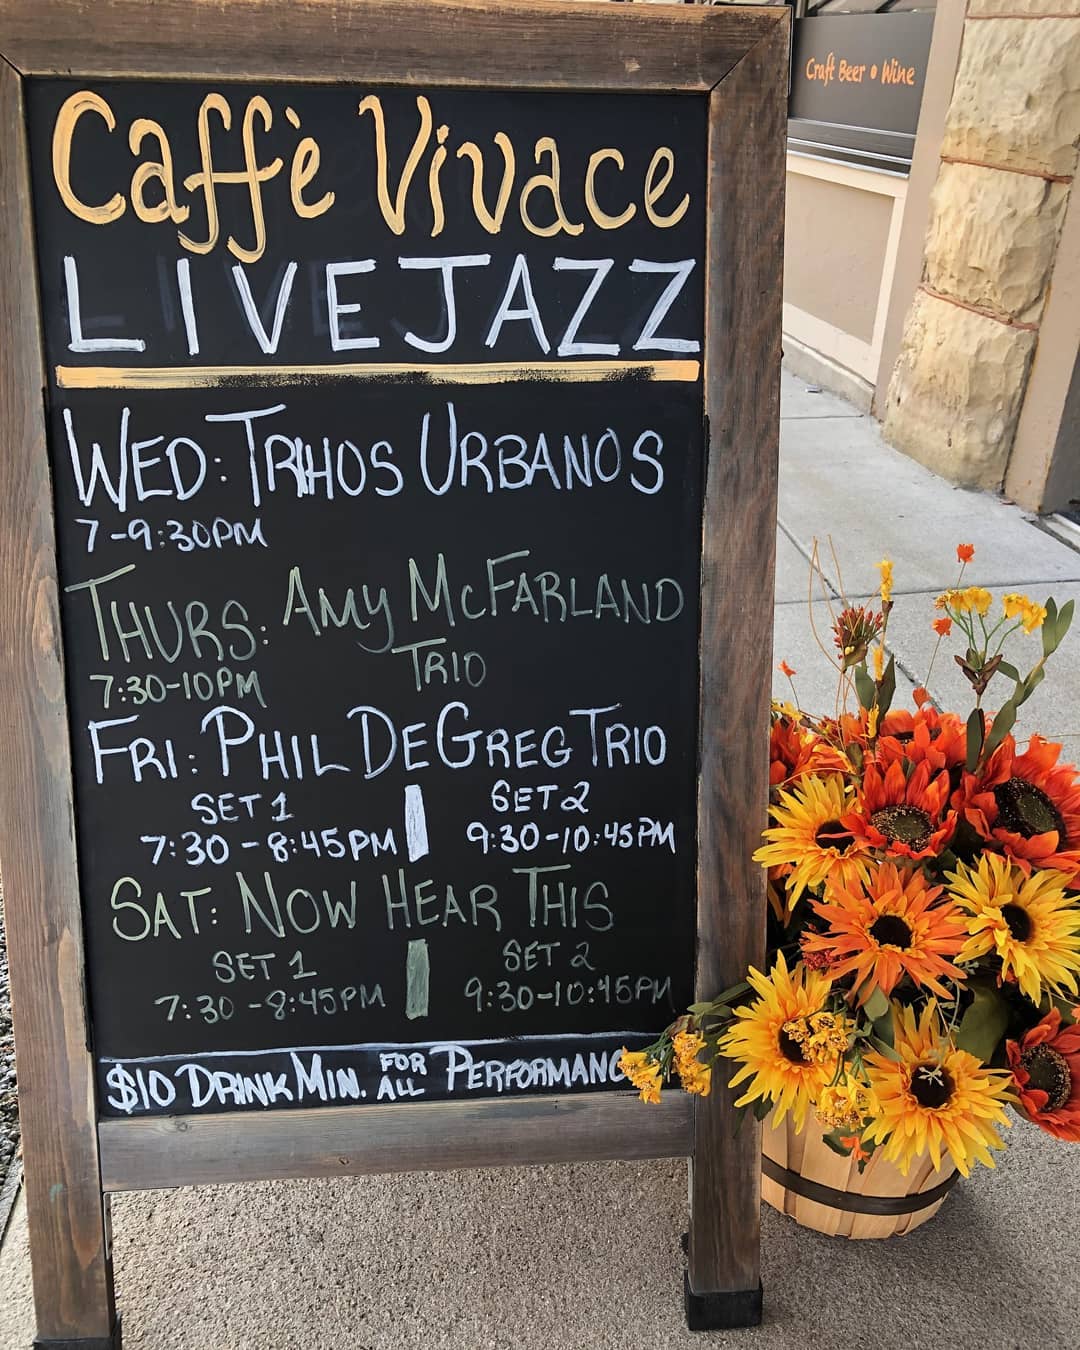 Craft Beer • Wine
Caffè Vivace
LIVE JAZZ
WED: TRIHOS URBANOS
7-9:30PM
THURS: AMY MCFARLAND
7:30-10PM TRIO
FRI: PHIL DEGREG TRIO
SET 1 SET 2
7:30-8:45PM 9:30-10:45PM
SAT: NOW HEAR THIS
SET 1 SET 2
7:30-8:45PM 9:30-10:45PM
$10 DRINK MIN. FOR ALL PERFORMANC